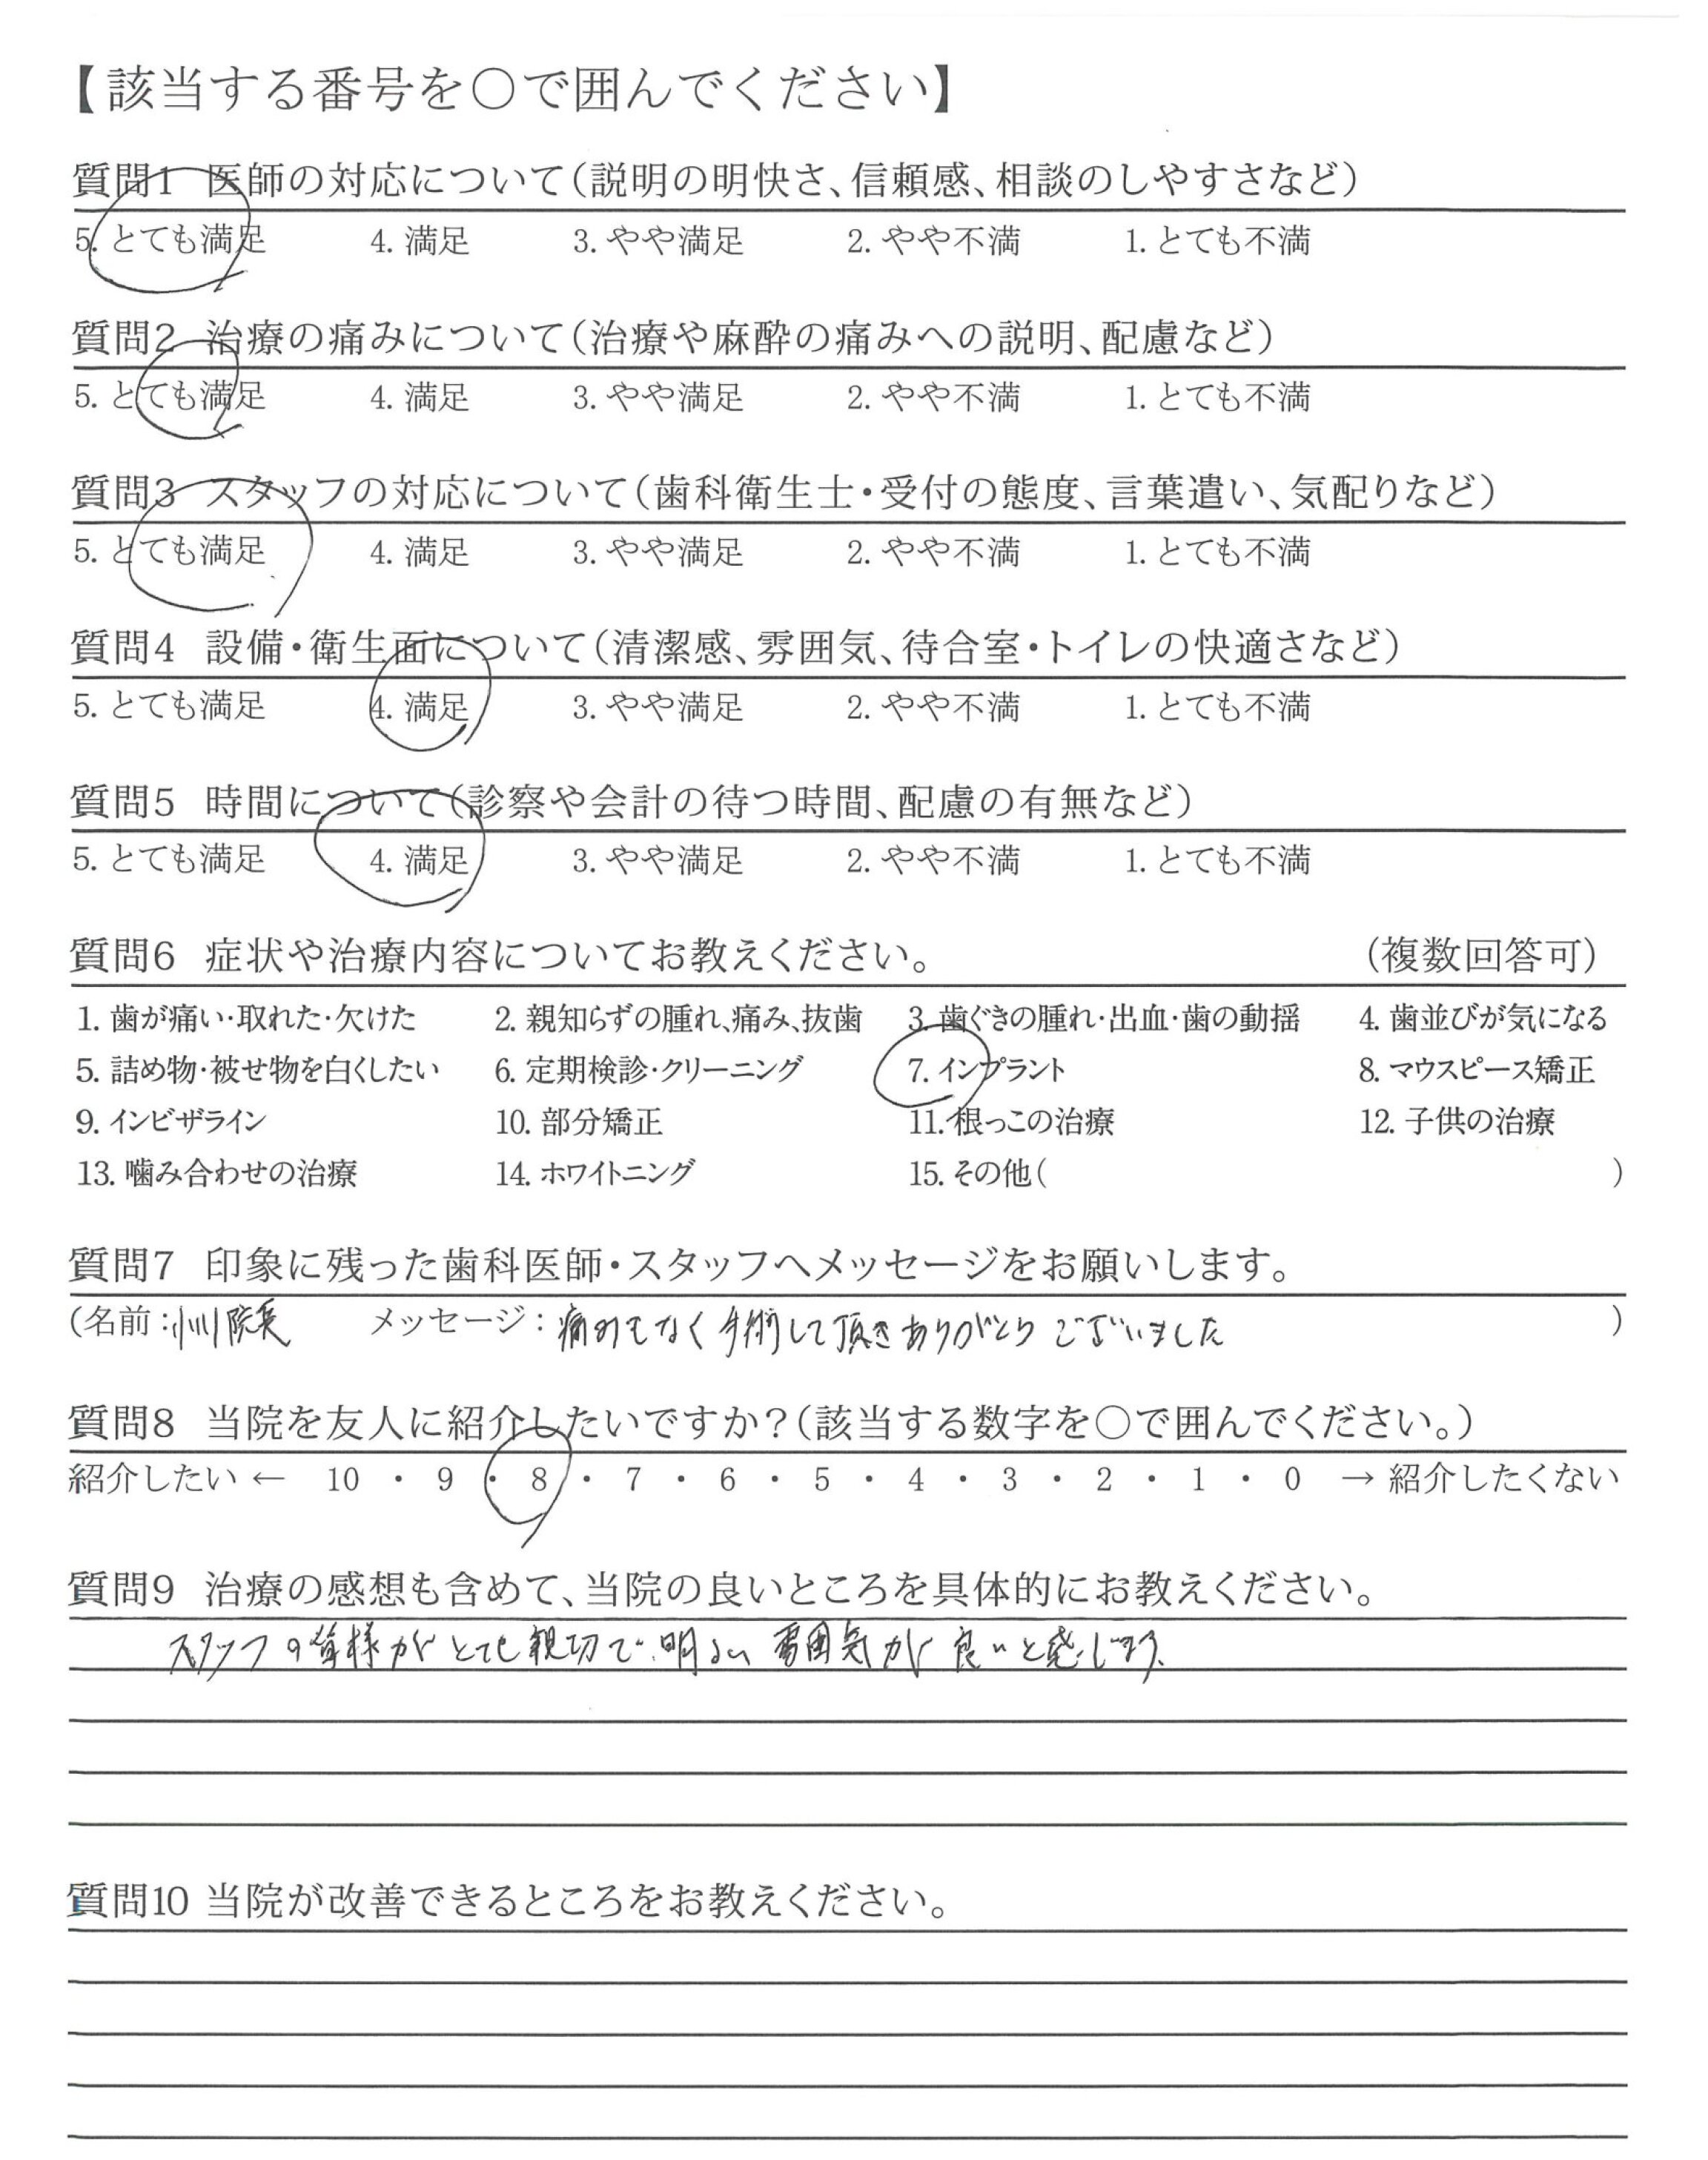 【該当する番号を○で囲んでください】
質問1 医師の対応について(説明の明快さ、信頼感、相談のしやすさなど)
5. とても満足 4. 満足 3. やや満足 2. やや不満 1. とても不満
質問2 治療の痛みについて(治療や麻酔の痛みへの説明、配慮など)
5. とても満足 4. 満足 3. やや満足 2. やや不満 1. とても不満
質問3 スタッフの対応について(歯科衛生士・受付の態度、言葉遣い、気配りなど)
5. とても満足 4. 満足 3. やや満足 2. やや不満 1. とても不満
質問4 設備・衛生面について(清潔感、雰囲気、待合室・トイレの快適さなど)
5. とても満足 4. 満足 3. やや満足 2. やや不満 1. とても不満
質問5 時間について(診察や会計の待つ時間、配慮の有無など)
5. とても満足 4. 満足 3. やや満足 2. やや不満 1. とても不満
質問6 症状や治療内容についてお教えください。 (複数回答可)
1. 歯が痛い・取れた・欠けた 2. 親知らずの腫れ、痛み、抜歯 3. 歯ぐきの腫れ・出血・歯の動揺 4. 歯並びが気になる
5. 詰め物・被せ物を白くしたい 6. 定期検診・クリーニング 7. インプラント 8. マウスピース矯正
9. インビザライン 10. 部分矯正 11. 根っこの治療 12. 子供の治療
13. 噛み合わせの治療 14. ホワイトニング 15. その他( )
質問7 印象に残った歯科医師・スタッフへメッセージをお願いします。
(名前:小川院長 メッセージ:痛みもなく手術して頂きありがとうございました )
質問8 当院を友人に紹介したいですか?(該当する数字を○で囲んでください。)
紹介したい ← 10 ・ 9 ・ 8 ・ 7 ・ 6 ・ 5 ・ 4 ・ 3 ・ 2 ・ 1 ・ 0 → 紹介したくない
質問9 治療の感想も含めて、当院の良いところを具体的にお教えください。
スタッフの皆様がとても親切で明るい雰囲気が良いと感じます。
質問10 当院が改善できるところをお教えください。